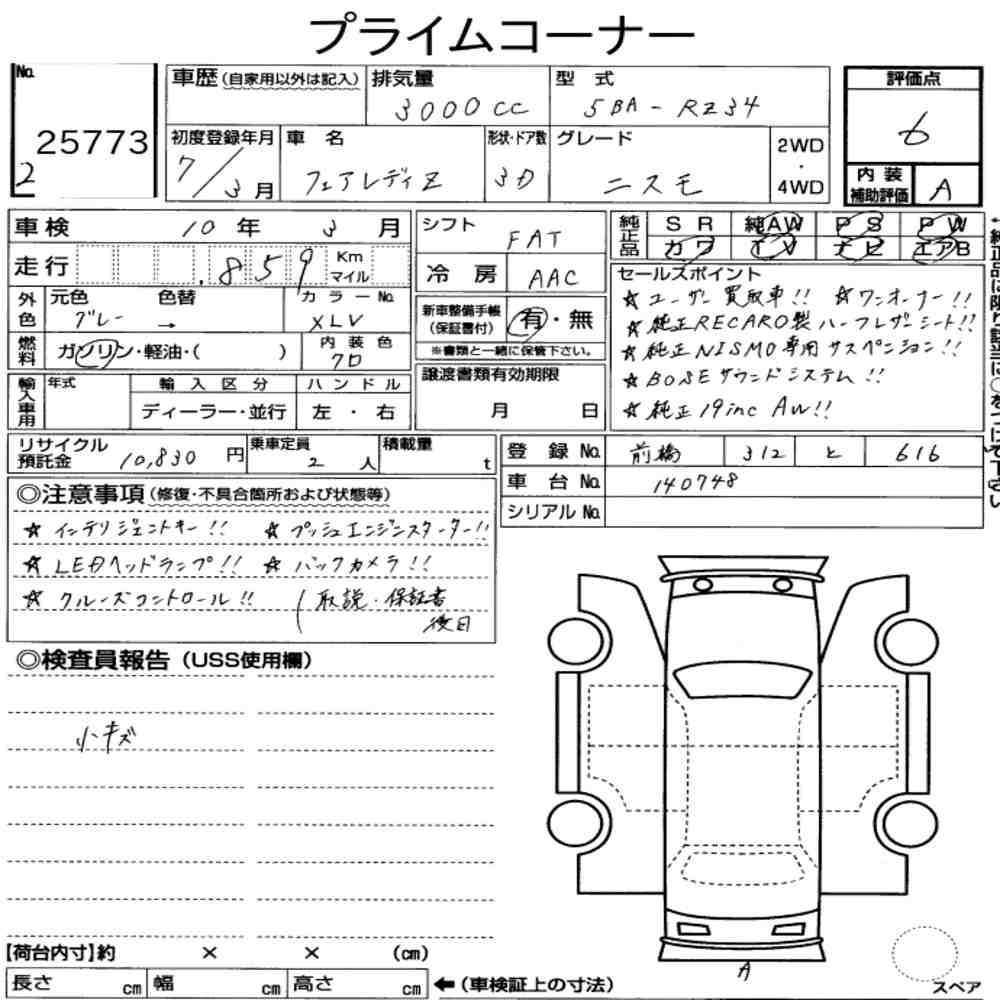 プライムコーナー
No.
25773
2
車歴(自家用以外は記入)
排気量
3000cc
型 式
5BA-RZ34
評価点
6
内装
補助評価
A
初度登録年月
7/3月
車 名
フェアレディZ
形状・ドア数
3D
グレード
ニスモ
2WD
・
4WD
車検 10年 3月
走行 .859 Km マイル
外色 元色 グレー 色替 → カラーNo. XLV
燃料 ガソリン・軽油・( )
内装色 クロ
輸入車用 年式 輸入区分 ディーラー・並行 ハンドル 左・右
シフト FAT
冷房 AAC
新車整備手帳
(保証書付) 有・無
※書類と一緒に保管下さい。
譲渡書類有効期限
月 日
純正品 SR 純AW PS PW
カワ TV ナビ エアB
セールスポイント
☆ユーザー買取車!! ☆ワンオーナー!!
☆純正RECARO製ハーフレザーシート!!
☆純正NISMO専用サスペンション!!
☆BOSEサウンドシステム!!
☆純正19inc AW!!
←純正品に限り該当に○をつけて下さい
リサイクル
預託金 10,830円
乗車定員 2人
積載量 t
登録No. 前橋 312 と 616
車台No. 140748
シリアルNo.
◎注意事項(修復・不具合箇所および状態等)
☆インテリジェントキー!! ☆プッシュエンジンスターター!!
☆LEDヘッドランプ!! ☆バックカメラ!!
☆クルーズコントロール!! (取説・保証書
後日
◎検査員報告(USS使用欄)
小キズ
【荷台内寸】約 × × (cm)
長さ cm 幅 cm 高さ cm ←(車検証上の寸法)
A
スペア